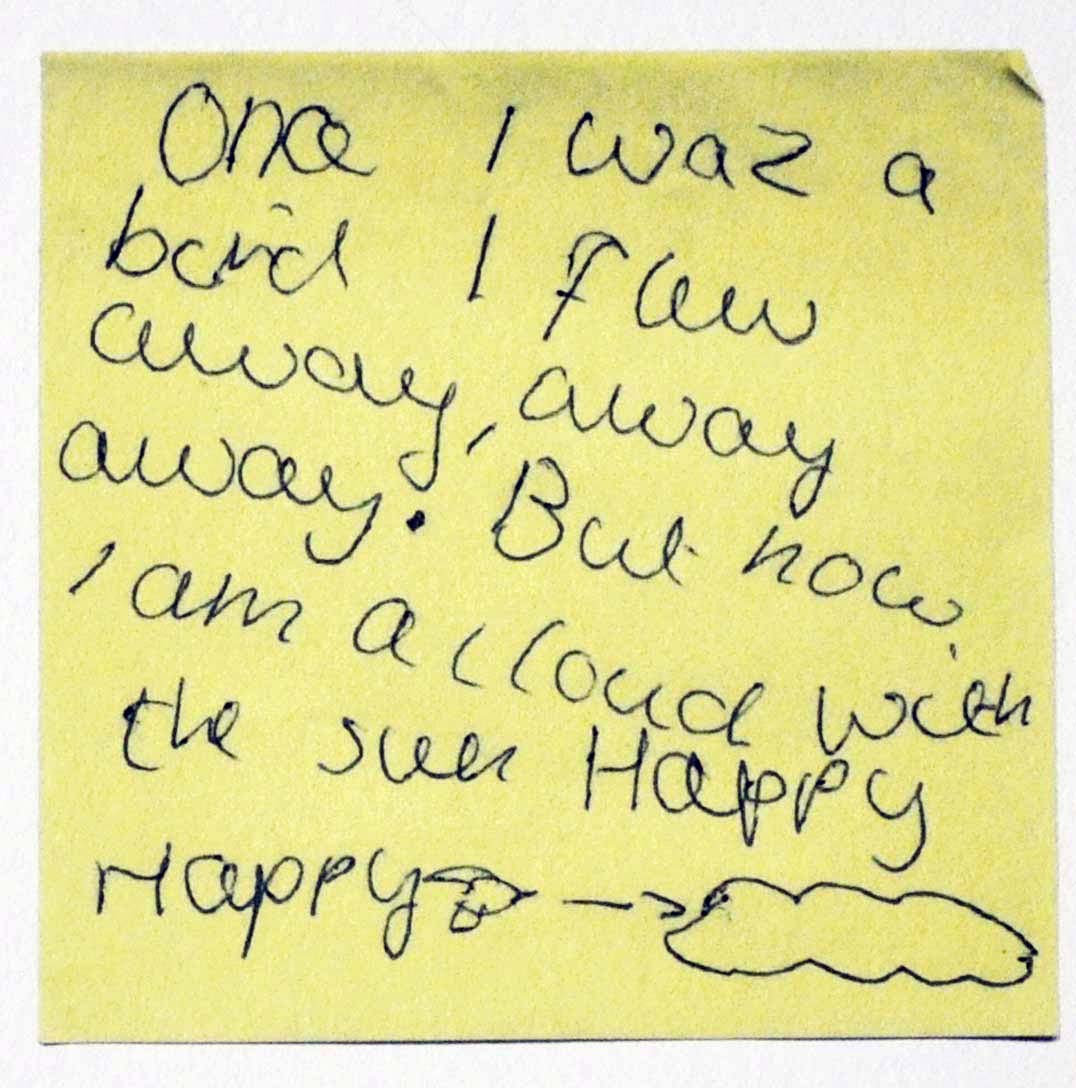 Once I waz a
baird I Flew
away, away
away. But now
I am a cloud with
the sun Happy
Happy